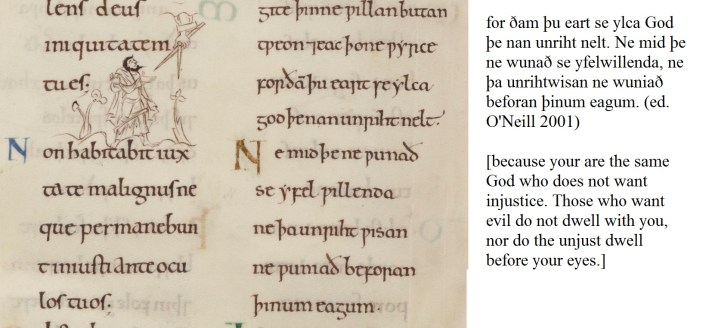 lens deus
iniquitatem
tu es:
Non habitabit iux
ta te malignus ne
que permanebun
t iniusti ante ocu
los tuos:
gite þinne ƿillan butan
tƿeon ⁊eac þone ƿyrce
forðā þu eart se ylca
god þe nan unriht nelt:
Ne mid þe ne ƿunað
se yfel ƿillenda
ne þa unriht ƿisan
ne ƿuniað beforan
þinum eagum.
for ðam þu eart se ylca God
þe nan unriht nelt. Ne mid þe
ne wunað se yfelwillenda, ne
þa unrihtwisan ne wuniað
beforan þinum eagum. (ed.
O'Neill 2001)
[because your are the same
God who does not want
injustice. Those who want
evil do not dwell with you,
nor do the unjust dwell
before your eyes.]